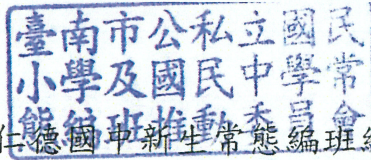 臺南市公私立國民
小學及國民中學常
態編班推動委員會
仁德國中新生常態編班